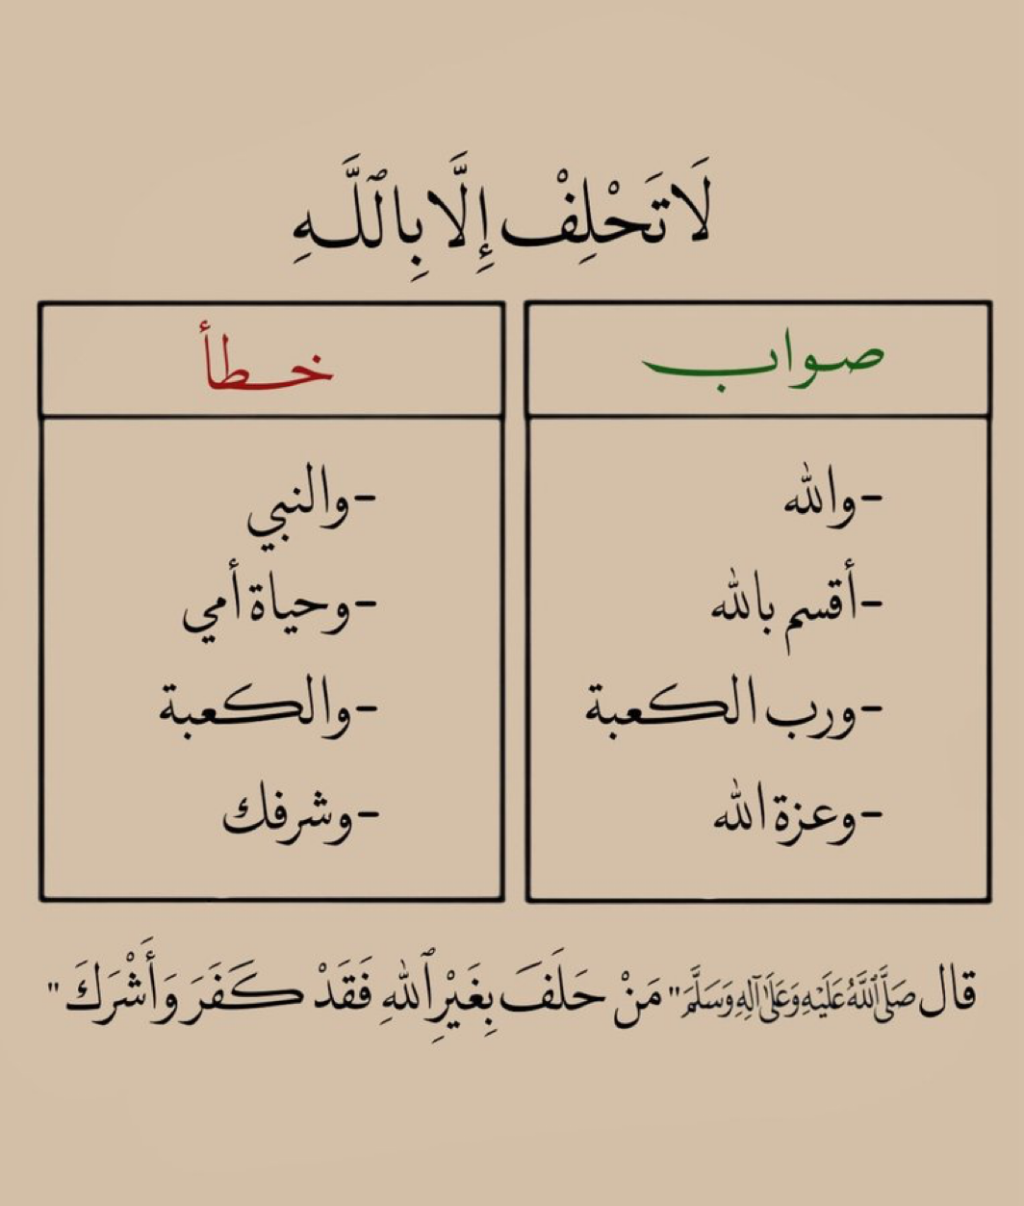 لَا تَحْلِفْ إِلَّا بِٱللَّهِ
صواب
-والله
-أقسم بالله
-ورب الكعبة
-وعزة الله
خطأ
-والنبي
-وحياة أمي
-والكعبة
-وشرفك
قال صَلَّى ٱللَّهُ عَلَيْهِ وَعَلَىٰ آلِهِ وَسَلَّمَ " مَنْ حَلَفَ بِغَيْرِ ٱللهِ فَقَدْ كَفَرَ وَأَشْرَكَ "